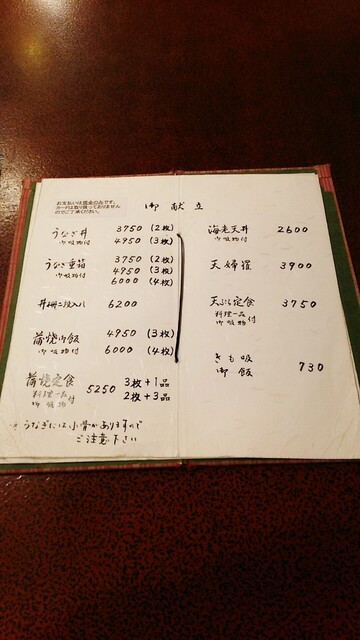 お支払いは現金のみです。
カードは取り扱っておりません
のでご了承ください。
御献立
うなぎ丼 3750 (2枚)
御吸物付 4950 (3枚)
うなぎ重箱 3750 (2枚)
御吸物付 4950 (3枚)
6000 (4枚)
丼 二段入り 6200
蒲焼御飯 4950 (3枚)
御吸物付 6000 (4枚)
蒲焼定食 5250 3枚+1品
料理一品付 2枚+3品
御吸物
※うなぎには小骨がありますので
ご注意下さい
海老天丼 2600
御吸物付
天婦羅 3900
天ぷら定食 3750
料理一品付
御吸物
きも吸
御飯 730